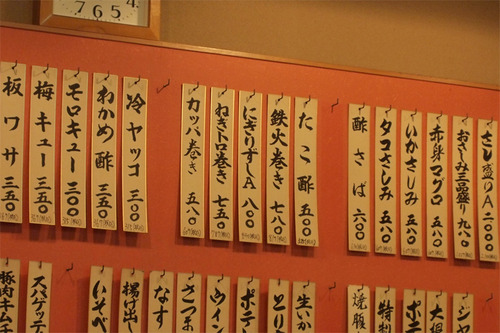 7 6 5 4
さし盛りA 二〇〇〇
おさみ三品盛り 九八〇
赤身マグロ 五八〇
いかさしみ 五八〇
タコさしみ 五八〇
酢さば 六〇〇
たこ酢 五〇〇
鉄火巻き 七八〇
にぎりずしA 八〇〇
ねぎトロ巻き 七五〇
カッパ巻き 五八〇
冷ヤッコ 三〇〇
わかめ酢 三五〇
モロキュー 三〇〇
梅キュー 三五〇
板ワサ 三五〇
ジャ
大根
ポテ
特製
焼腹
生いか
とり
ポテ
ウイン
さつま
なす
揚げ出し
いそべ
スパゲッテ
豚肉キムチ